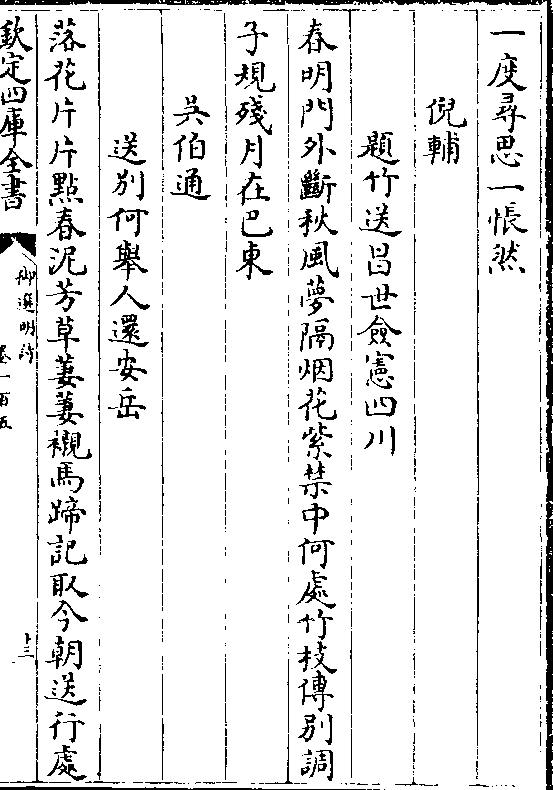 一度尋思一悵然
倪輔
題竹送呂世僉憲四川
春明門外斷秋風夢隔烟花紫禁中何處竹枝傳别調
子規殘月在巴東
吳伯通
送别何舉人還安岳
落花片片點春泥芳草萋萋襯馬蹄記取今朝送行處
欽定四庫全書
御選明詩
卷一百五
十三